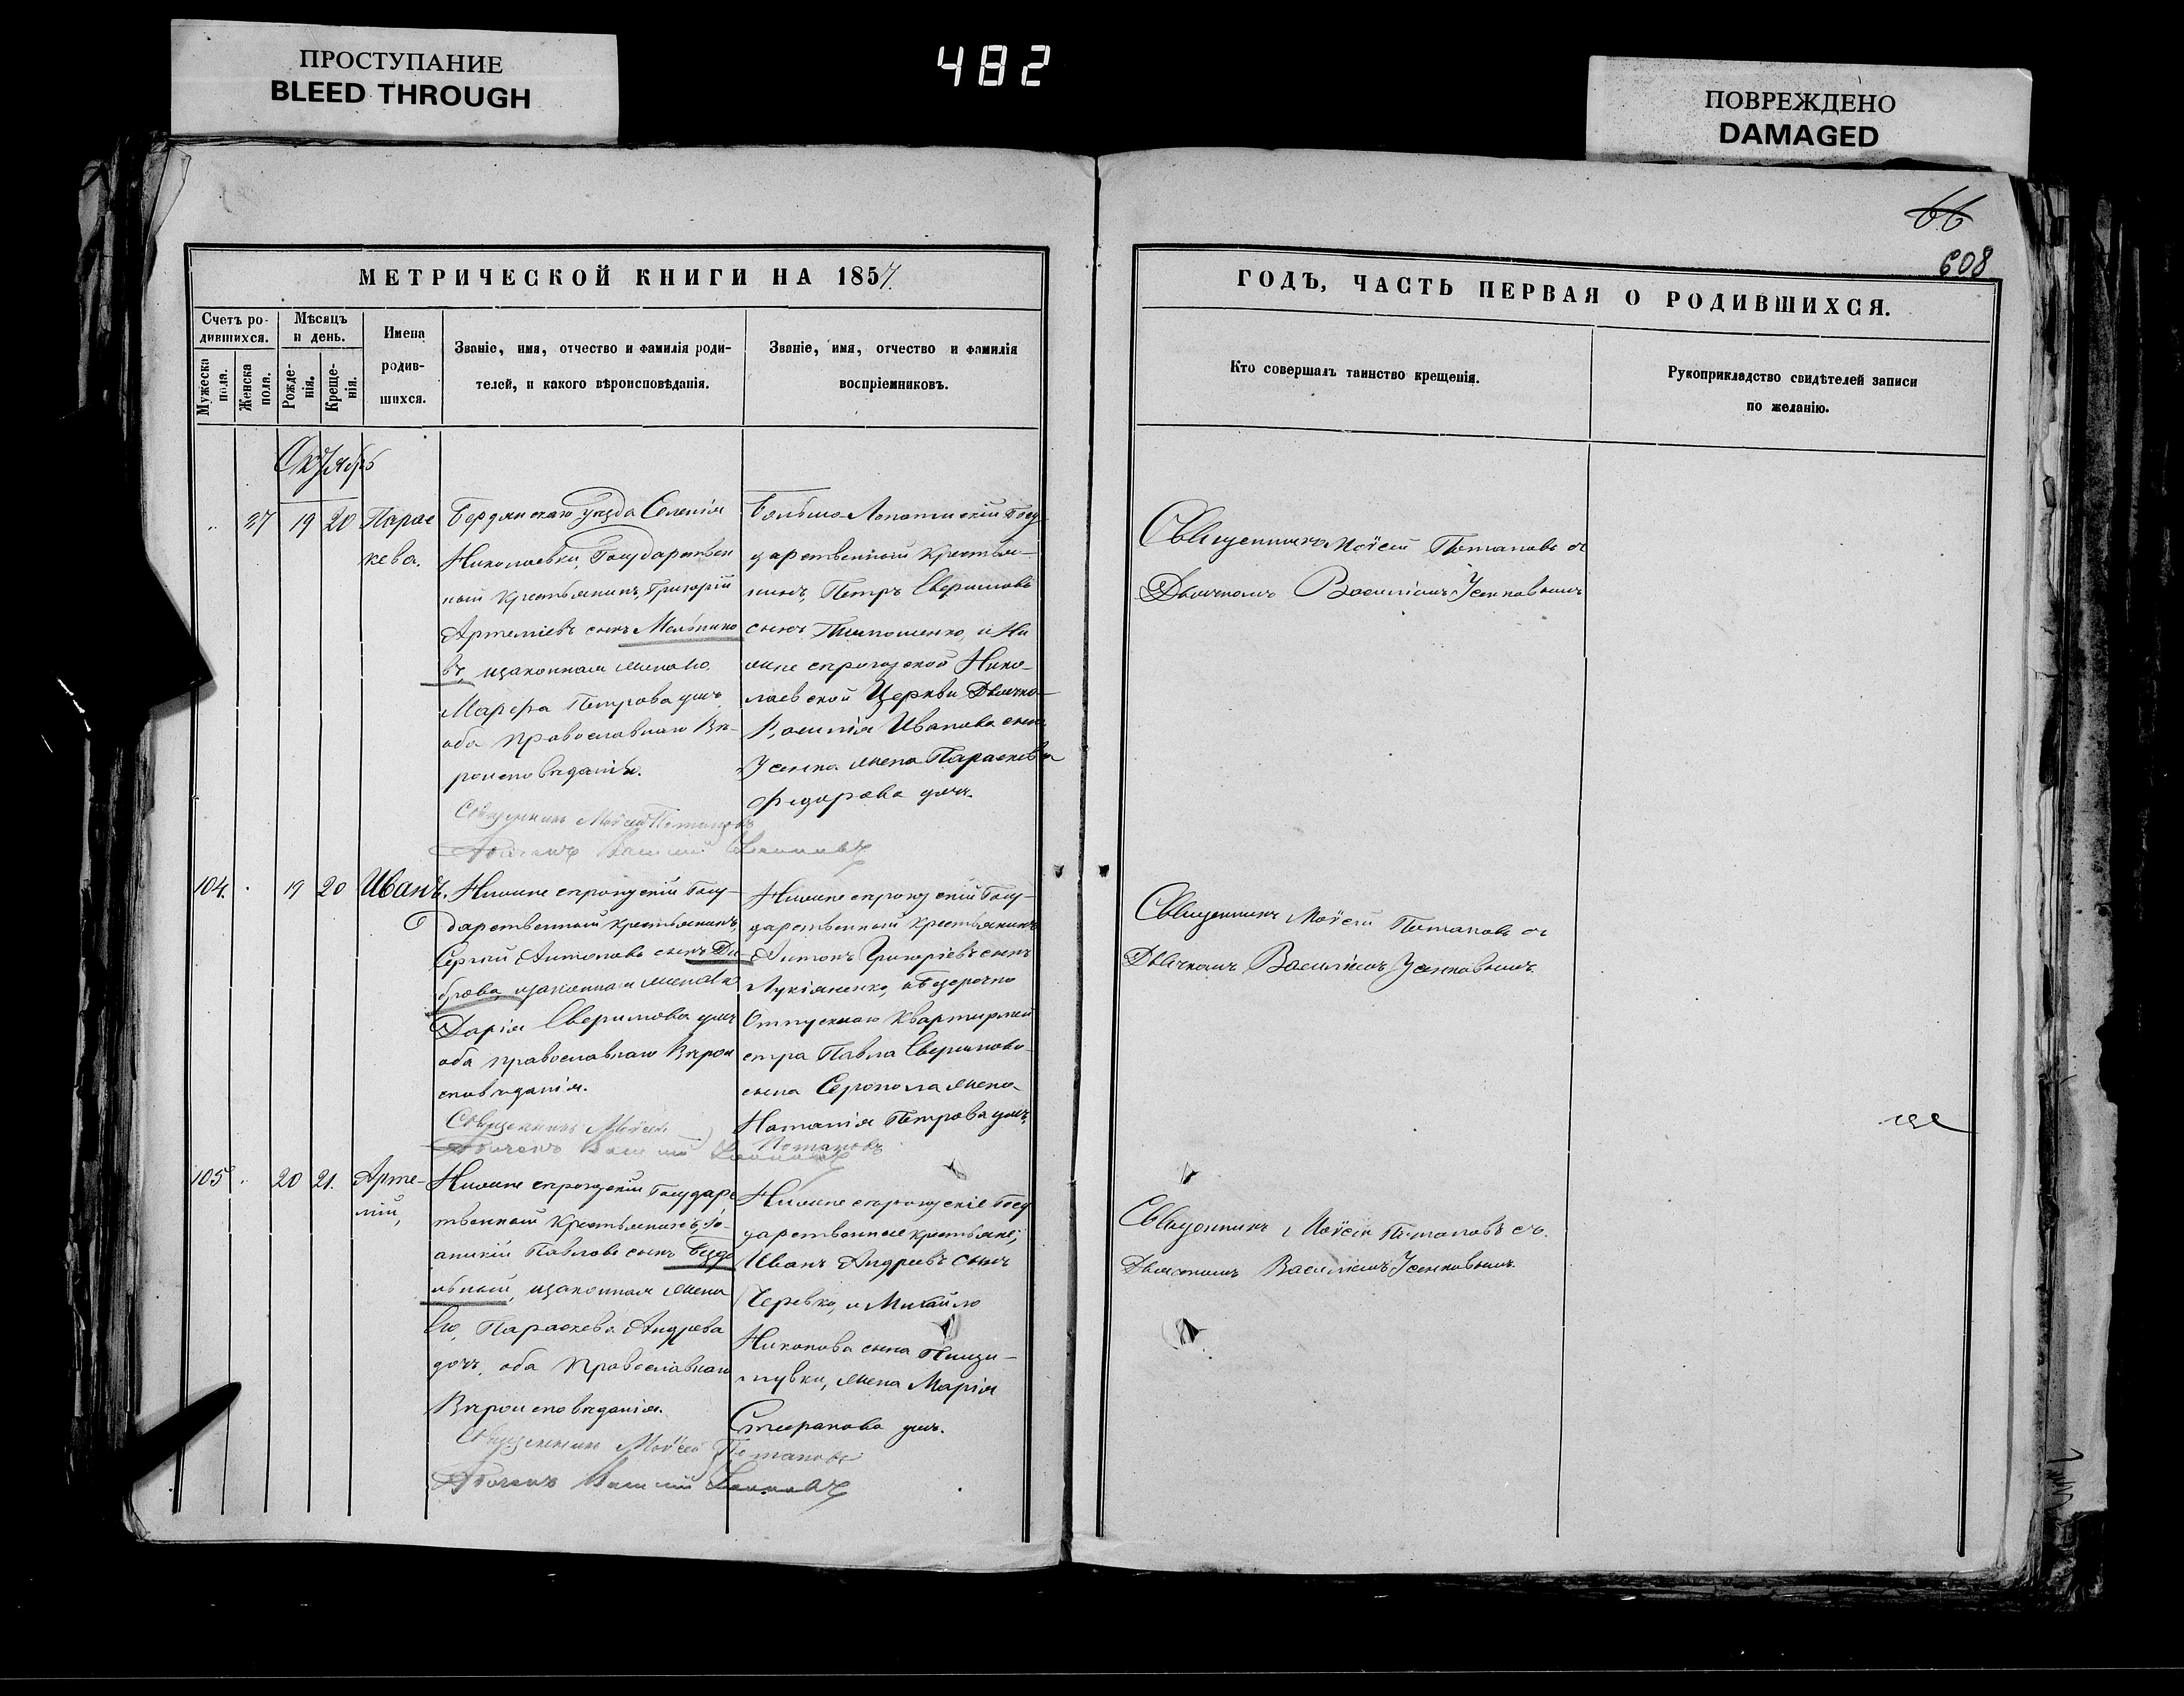 ПРОСТУПАНИЕ
BLEED THROUGH
482
ПОВРЕЖДЕНО
DAMAGED
66
608
МЕТРИЧЕСКОЙ КНИГИ НА 1857.
ГОДЪ, ЧАСТЬ ПЕРВАЯ О РОДИВШИХСЯ.
Счетъ ро-
дившихся.
Мужеска пола.
Женска пола.
Мѣсяцъ
и день.
Рожде-
нія.
Креще-
нія.
Имена
родив-
шихся.
Званіе, имя, отчество и фамилія роди-
телей, и какого вѣроисповѣданія.
Званіе, имя, отчество и фамилія
воспріемниковъ.
Кто совершалъ таинство крещенія.
Рукоприкладство свидѣтелей записи
по желанію.
Октябрь
37 19 20
Парас
кева.
Бердянскаго уѣзда Селенія
Николаевки, Государствен
ный Крестьянинъ, Григорій
Артеміевъ сынъ Мельнико
въ, изаконная жена его
Марфа Петрова дочь,
оба православнаго Вѣ-
роисповѣданія.
Священникъ Моѵсей Потаповъ
Дьячекъ Василій
Государственный Крестья-
нинъ, Петръ
сынъ Тимошенко, и
Нико-
лаевской Церкви Дьячка
Василія Иванова сына
Усенка жена Параскева
Федорова дочь.
Священникъ Моѵсей Потаповъ съ
Дьячкомъ Василіемъ Усенковымъ
104. 19 20
Иванъ.
Госу-
дарственный крестьянинъ,
Сергій Антоновъ сынъ Ди-
брова, изаконная жена его
Дарія дочь
оба православнаго Вѣрои
сповѣданія.
Священникъ Моѵсей Потаповъ
Дьячекъ Василій
Госу-
дарственный крестьянинъ
Антонъ Григоріевъ сынъ
Лукіяненко, и безсрочно
Отпускнаго Квартирмей
стра Павла
сына жена
Наталія Петрова дочь.
Священникъ Моѵсей Потаповъ съ
Дьячкомъ Василіемъ Усенковымъ.
105 20 21.
Арте-
мій,
Государс
твенный Крестьянинъ, Іо-
аникій Павловъ сынъ
изаконная жена
его, Параскева Андреева
дочь, оба Православнаго
Вѣроисповѣданія.
Священникъ Моѵсей Потаповъ
Дьячекъ Василій
Госу
дарственные крестьяне,
Иванъ Андреевъ сынъ
Черевко, и Михайло
Никонова сына
жена Марія
Стефанова дочь.
Священникъ Моѵсей Потаповъ съ
Дьячкомъ Василіемъ Усенковымъ.